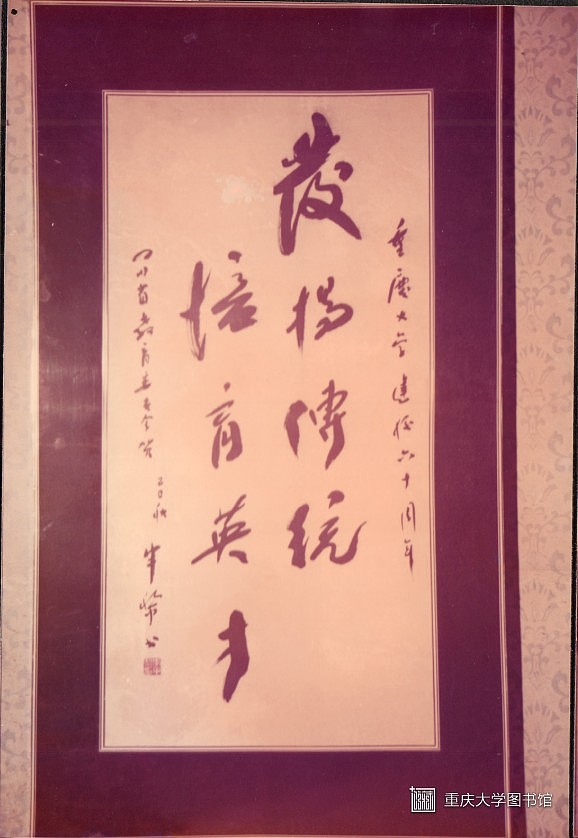 重慶大学建校六十周年
發揚傳統
培育英才
四川省教育委員会贺
書
重庆大学图书馆